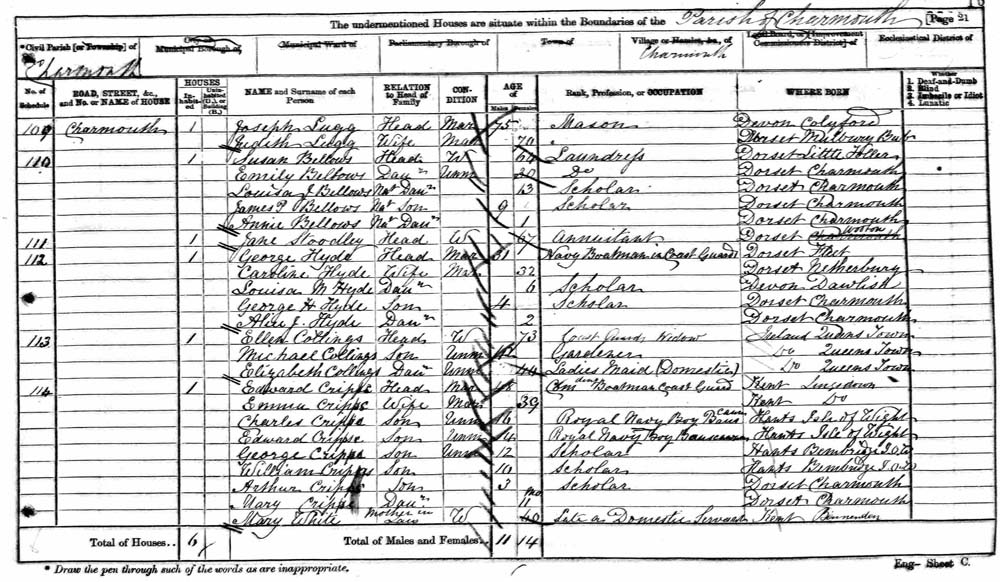 The undermentioned Houses are situate within the Boundaries of the Parish of Charmouth [Page 21
*Civil Parish [or Township] of Charmouth City or Municipal Borough of Municipal Ward of Parliamentary Borough of Town of Village or Hamlet, &c., of Charmouth Local Board, or [Improvement Commissioners District] of Ecclesiastical District of
No. of Schedule ROAD, STREET, &c., and No. or NAME of HOUSE HOUSES Inhabited Uninhabited (U.), or Building (B.) NAME and Surname of each Person RELATION to Head of Family CONDITION AGE of Males Females Rank, Profession, or OCCUPATION WHERE BORN Whether 1. Deaf-and-Dumb 2. Blind 3. Imbecile or Idiot 4. Lunatic
109 Charmouth 1 Joseph Lugg Head Mar 75 Mason Devon Colyford
Judith Lugg Wife Mar 70 Dorset
110 1 Susan Bellows Head W 64 Laundress Dorset Little
Emily Bellows Daur Unm 30 Do Dorset Charmouth
Louisa J Bellows Nat Daur 13 Scholar Dorset Charmouth
James P Bellows Nat Son 9 Scholar Dorset Charmouth
Annie Bellows Nat Daur 1 Dorset Charmouth
111 1 Jane Stoodley Head W 67 Annuitant Dorset Charmouth Wootton
112 1 George Hyde Head Mar 31 Navy Boatman in Coast Guard Dorset Fleet
Caroline Hyde Wife Mar 32 Dorset Netherbury
Louisa M Hyde Daur 6 Scholar Devon Dawlish
George H Hyde Son 4 Scholar Dorset Charmouth
Alice J. Hyde Daur 2 Dorset Charmouth
113 1 Ellen Collings Head W 73 Coast Guards Widow Ireland Queens Town
Michael Collings Son Unm Gardener Do Queens Town
Elizabeth Collings Daur Unm 44 Ladies Maid (Domestic) Do Queens Town
114 1 Edward Cripps Head Mar Boatman Coast Guard Kent
Emma Cripps Wife Mar 39 Kent Do
Charles Cripps Son Unm 16 Royal Navy Boy Hants Isle of Wight
Edward Cripps Son Unm 14 Royal Navy Boy Hants Isle of Wight
George Cripps Son Unm 12 Scholar Hants Bembridge I.O.W
William Cripps Son 10 Scholar Hants Bembridge I.O.W
Arthur Cripps Son 3 Scholar Dorset Charmouth
Mary Cripps Daur mo Dorset Charmouth
Mary White Mother in Law W Late a Domestic Servant Kent Benenden
Total of Houses.. 6 Total of Males and Females.. 11 14
* Draw the pen through such of the words as are inappropriate. Eng—Sheet C.